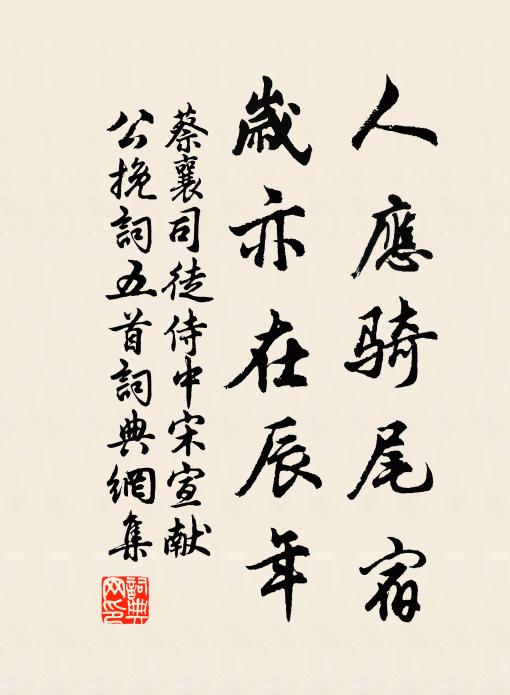 人應骑尾宿
歲亦在辰年
蔡襄司徒侍中宋宣献
公挽詞五首詞典網集